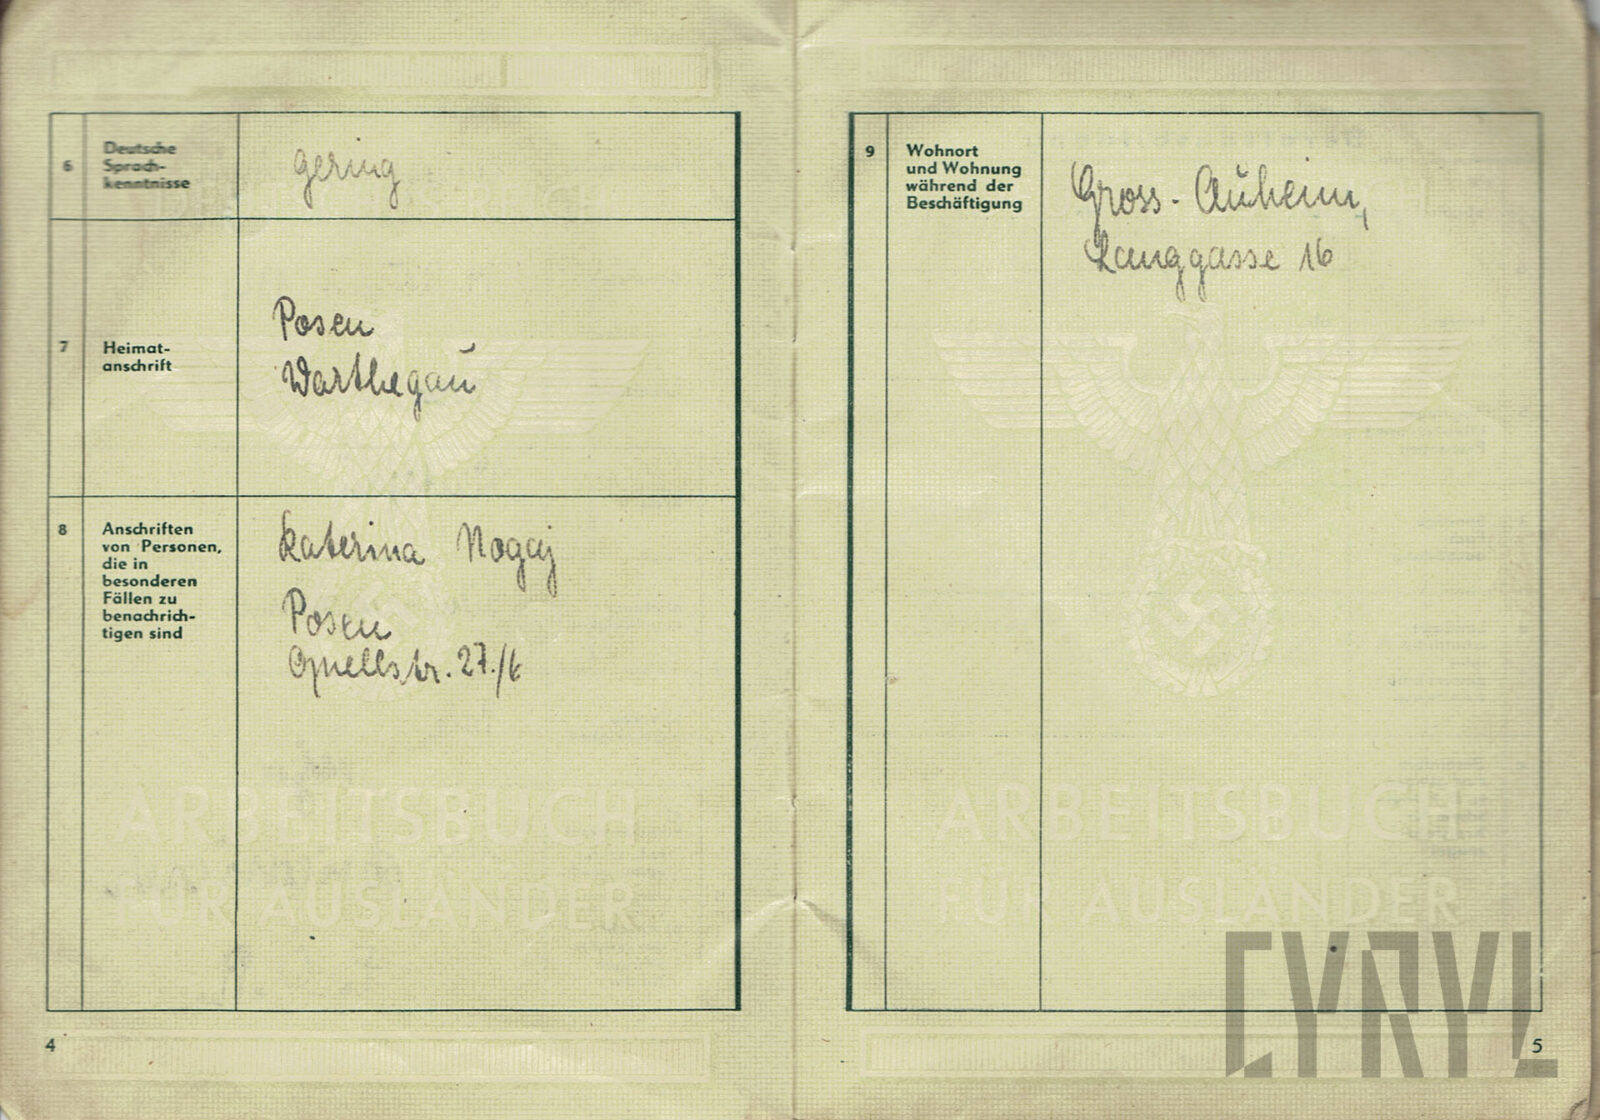 6
Deutsche
Sprach-
kenntnisse
gering
7
Heimat-
anschrift
Posen
Warthegau
8
Anschriften
von Personen,
die in
besonderen
Fällen zu
benachrich-
tigen sind
Katerina Nogaj
Posen
Quellstr. 27./6
ARBEITSBUCH
FÜR AUSLÄNDER
4
9
Wohnort
und Wohnung
während der
Beschäftigung
Gross-Auheim,
Langgasse 16
ARBEITSBUCH
FÜR AUSLÄNDER
5
CYRYL